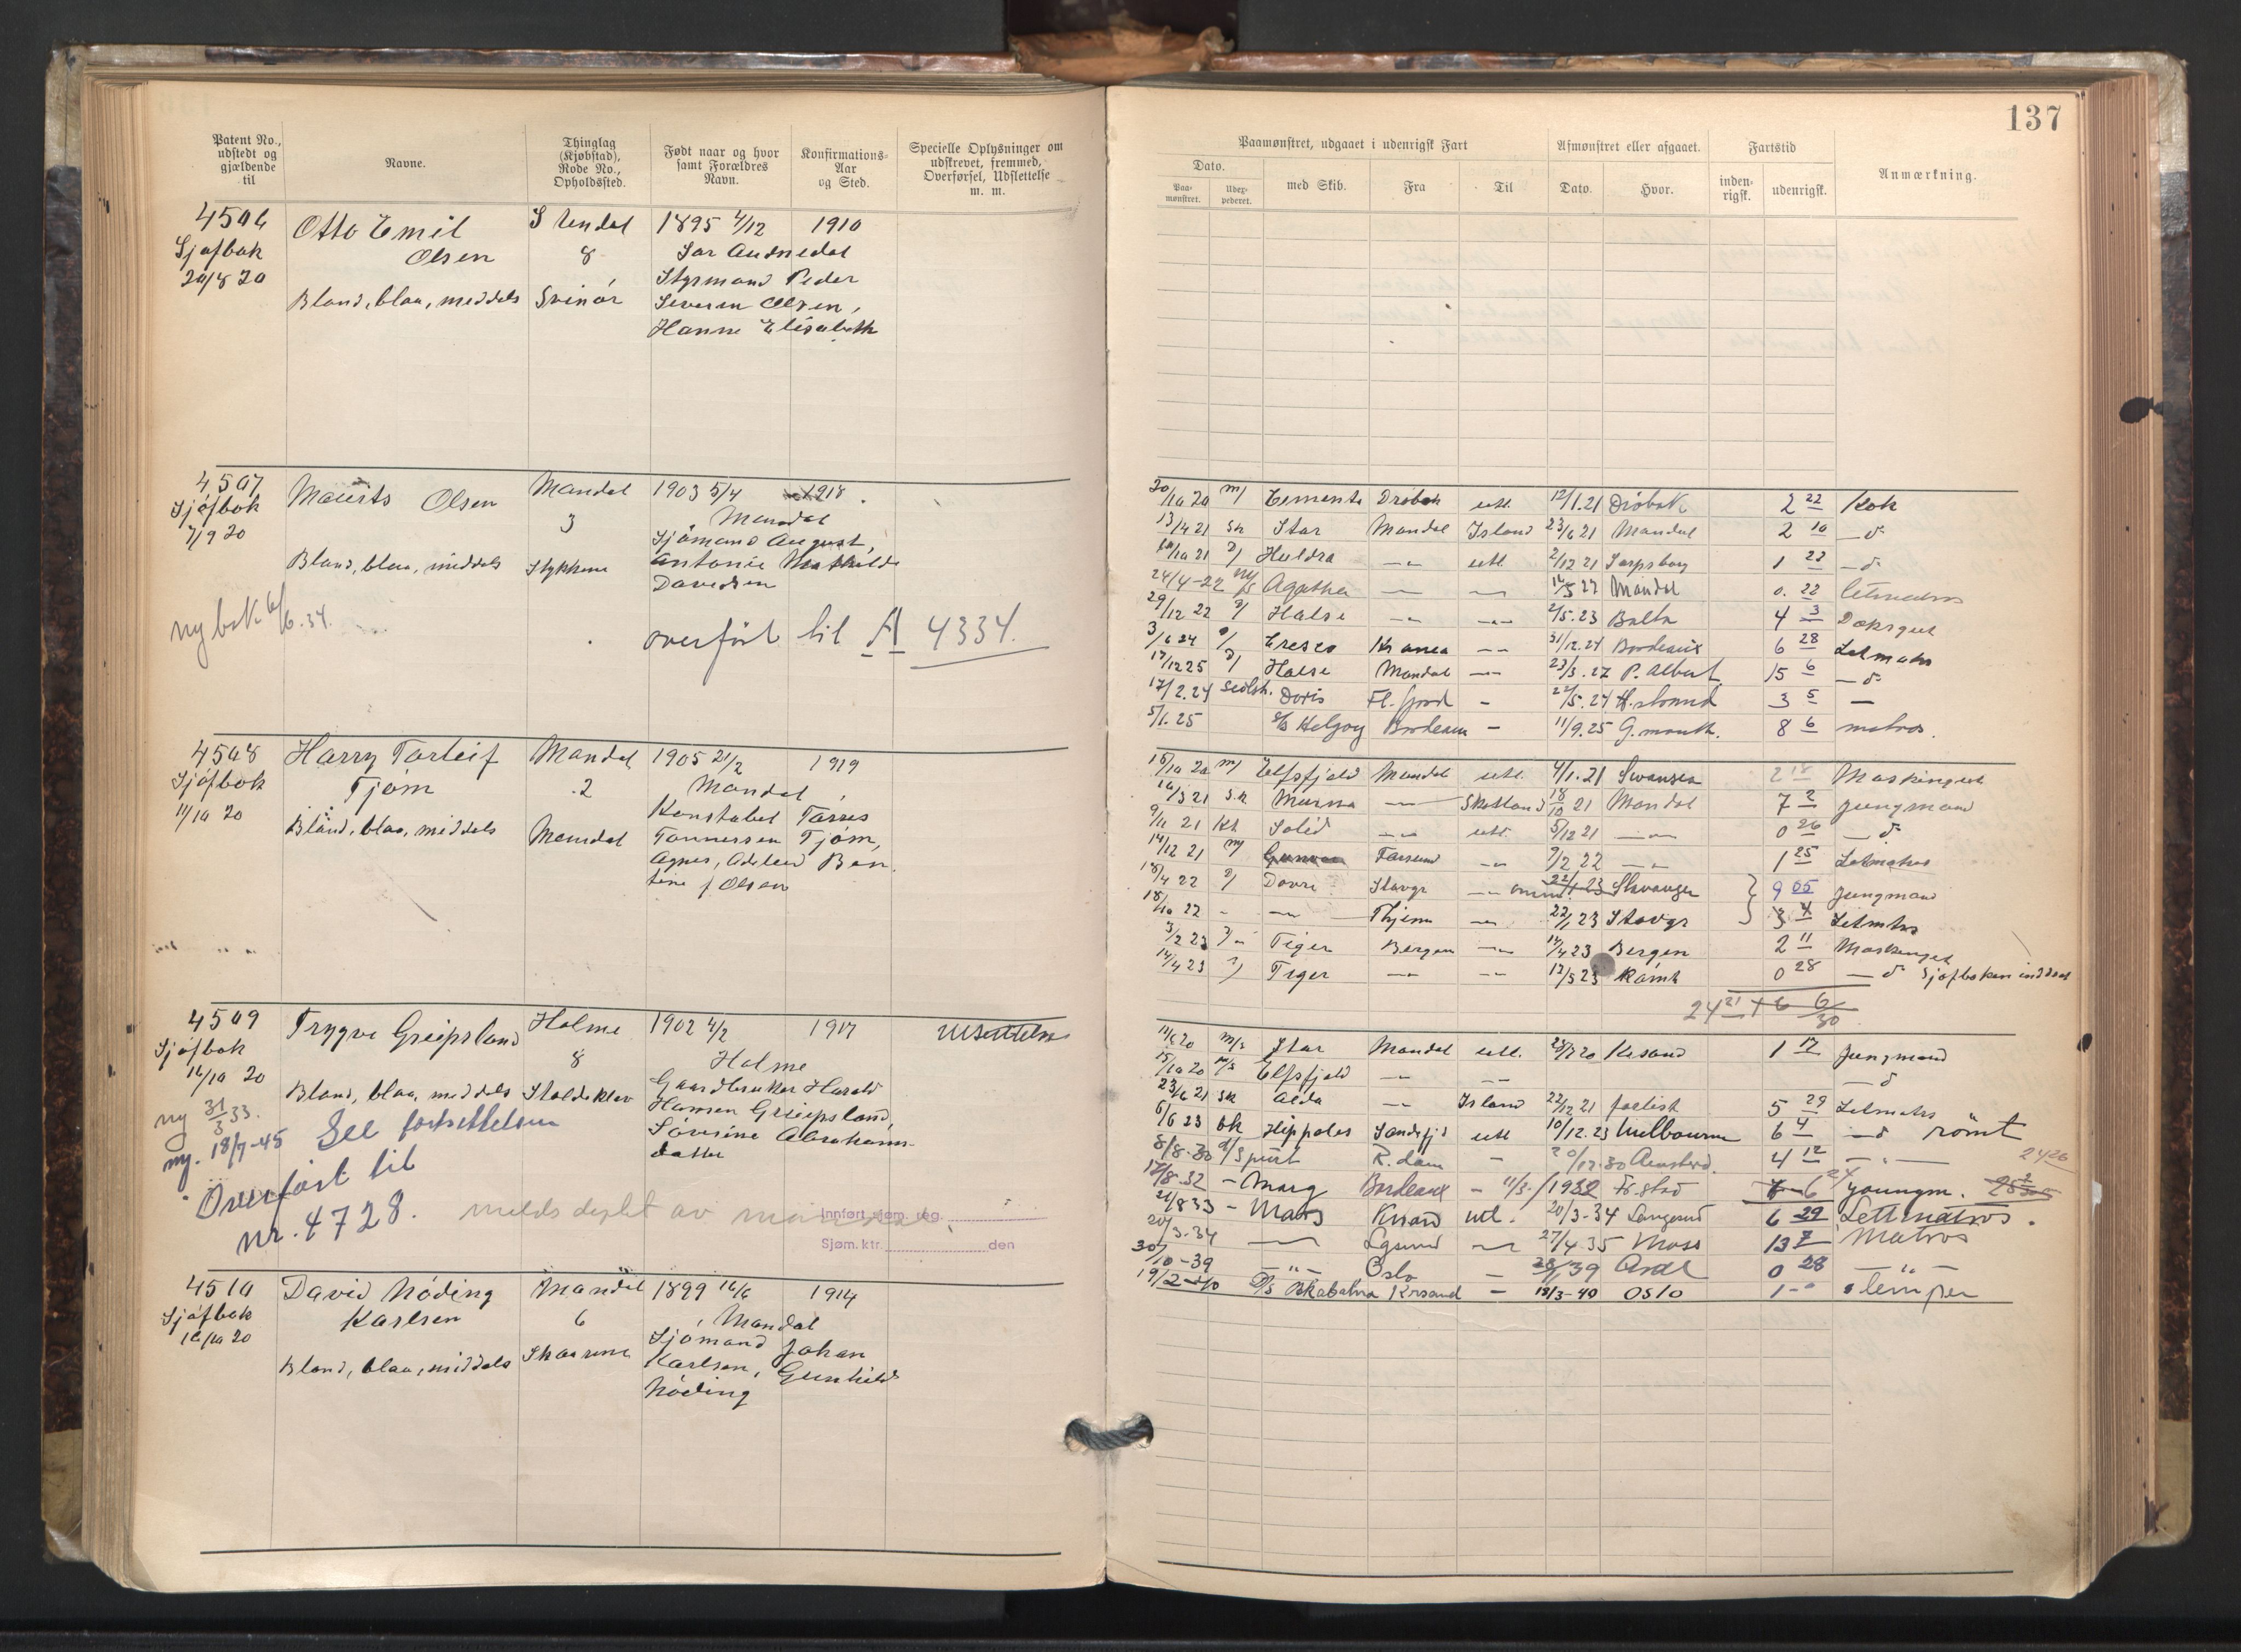 137
Patent No., udstedt og gjældende til
Navne.
Thinglag (Kjøbstad), Rode No., Opholdssted.
Født naar og hvor samt Forældres Navn.
Konfirmations-Aar og Sted.
Specielle Oplysninger om udskrevet, fremmed, Overførsel, Udslettelse m. m.
Paamønstret, udgaaet i udenrigsk Fart
Dato.
Paamønstret.
Uderpederet.
med Skib.
Fra
Til
Afmønstret eller afgaaet.
Dato.
Hvor.
Fartstid
indenrigsk.
udenrigsk.
Anmærkning.
4506 Otto Emil S Undal 1895 4/12 1910
Sjøfbok Olsen 8 Sør Audnedal
20/8 20 Styrmand Peder
Bland, blaa, meddels Svinør Severin Olsen,
Hanne Elisabeth
4507 Maurits Olsen Mandal 1903 5/4 1918
Sjøfbok 3 Mandal
7/9 20 Sjømand August,
Bland, blaa, middels Antonie Mathilde
Davidsen
ny bok 6/6.34.
overført til A 4334.
4508 Harry Torleif Mandal 1905 21/2 1919
Sjøfbok Tjøm 2 Mandal
11/10 20 Konstabel
Bland, blaa, middels Mandal Tønnessen Tjøm,
Agnes,
f Olsen
4509 Trygve Greipsland Holme 1902 4/2 1917
Sjøfbok 8 Holme
16/10 20 Gaardbruker Harald
Bland, blaa, middels Hansen Greipsland,
ny 31/3 33. Sørine Abrahams-
ny. 18/9-45 See fortsettelsen datter
Overført til
nr. 4728.
Innført sjøm. reg.
Sjøm. ktr. den
4510 David Nøding Mandal 1899 16/6 1914
Sjøfbok Karlsen 6 Mandal
16/10 20 Sjømand Johan
Bland, blaa, middels Karlsen, Gunhild
Nøding
20/10 20 m/ Cements Drøbak utl. 12/1.21 Drøbak 2 22 Kok
13/4 21 sk Star Mandal Island 23/6 21 Mandal 2 10 — d
10/10 21 D/ Huldra — utl. 2/12 21 Sarpsborg 1 22 — d
24/4-22 Agatha — — 16/5 22 Mandal 0. 22 letmatros
29/12 22 D/ Halse — — 2/5.23 Balta 4 3
3/6 24 D/ Cresco — 31/12.24 Bordeaux 6 28 Letmatr
17/12 25 D/ Halse Mandal — 23/3.27 P. Albert 15 6 — d
17/2.24 Doris Fl. fjord - 22/5.24 3 5 —
5/1.25 Bordeaux - 11/9.25 8 6 matros.
15/10 20 m/ Elfsfjeld Mandal utl. 4/1.21 Swansea 2 18 Maskingut
16/3 21 s.k — Skotland 18/10 21 Mandal 7 2 Jungmand
9/11 21 Kt Solid — utl. 5/12 21 — 0 26 — d
14/12 21 m/ Farsund — 9/2 22 — 1 25 Letmatros
18/4 22 D/ Dovre Stavgr — 22/1 23 Stavanger 9 05 Jungmand
18/10 22 - — — 22/1 23 Stavgr 3 4 Letmtrs
3/2 23 Tiger Bergen — 14/4 23 Bergen 2 11
14/4 23 D/ Tiger — — 12/5 23 Rømt 0 28 — d Sjøfboken inddrat
24 21 + 6 6/30
Star Mandal utl. 28/7 20 Krsand 1 17 Jungmand
15/10 20 m/s Elfsfjeld — — — d
23/6 21 sk Alda — Island 22/12 21 forlist 5 29 Letmatrs
6/6 23 bk Hippolos Sandefjd utl 10/12.23 Melbourne 6 4 — d rømt
8/8-30 D/ Spurt R.dam - 20/12.30 Amsterd. 4 12 — 24 26
17/8-32 - Marg Bordeaux - 11/3-/1932 Fr.stad 6 24 youngm.
21/8 33 - Mars Krsand utl. 20/3-34 Langesund 6 29 Lettmatros.
20/3.34 — Lgsund — 27/4 35 Moss 13 7 Matros
30/10-39 — " — Oslo — 28/11 39 0 28 — " —
19/2-40 D/s Krsand — 18/3-40 Oslo 1 - 0 Lemper